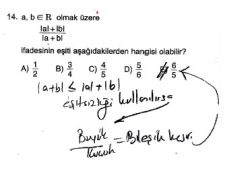 14. a, b ∈ R olmak üzere
|a|+|b|
|a+b|
ifadesinin eşiti aşağıdakilerden hangisi olabilir?
A) 1/2 B) 3/4 C) 4/5 D) 5/6 E) 6/5
|a+b| ≤ |a|+|b|
eşitsizliği kullanılırsa
Büyük
Küçük = Bileşik kesir